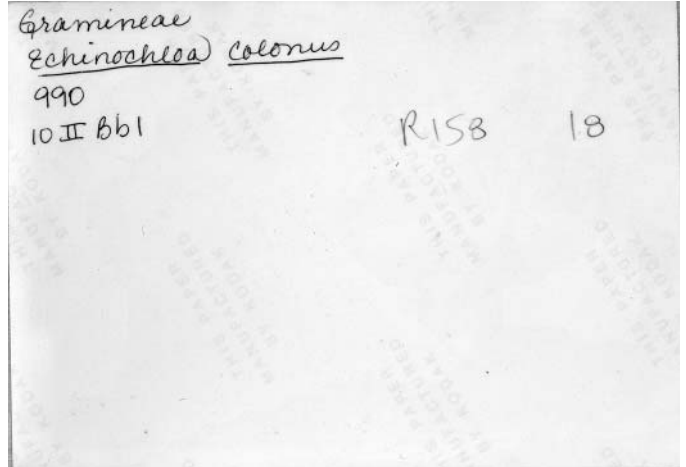 Gramineae
Echinochloa colonus
990
10 II Bb1
R158 18
THIS PAPER
MANUFACTURED
BY KODAK